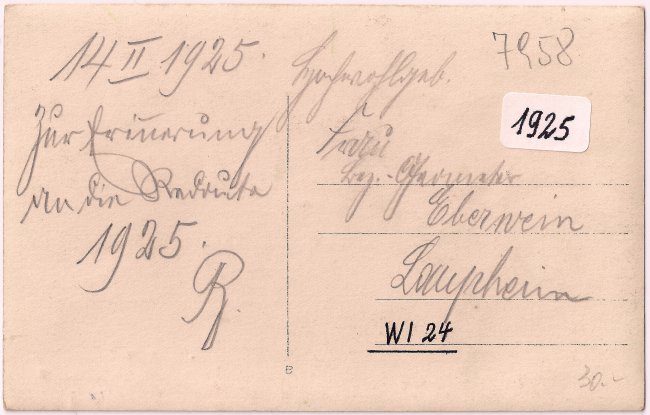 14 II 1925.
Zur Erinnerung
an die Redoute
1925.
R.
Hochwohlgeb.
Frau
Bez.-Geometer
Eberwein
Laupheim
7958
1925
WI 24
30.-